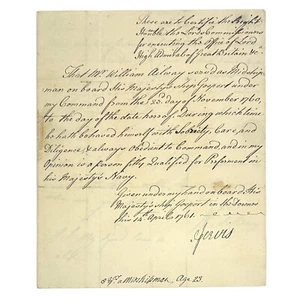 These are to Certifie the Right
Honble. the Lords Commissioners
for executing the Office of Lord
High Admiral of Great Britain &c.
That Mr. William Alway served as Midship
man on board His Majesty's Ship Gosport under
my Command from the 23. day of November 1760,
to the day of the date hereof. During which time
he hath behaved himself with Sobriety, Care, and
Diligence, & always obedient to Command, and in my
Opinion is a person fitly Qualified for Preferment in
his Majesty's Navy.
Given under my hand on board His
Majesty's Ship Gosport in the Downs
this 14th April 1761.
Jervis
a Midshipman, Age 23.